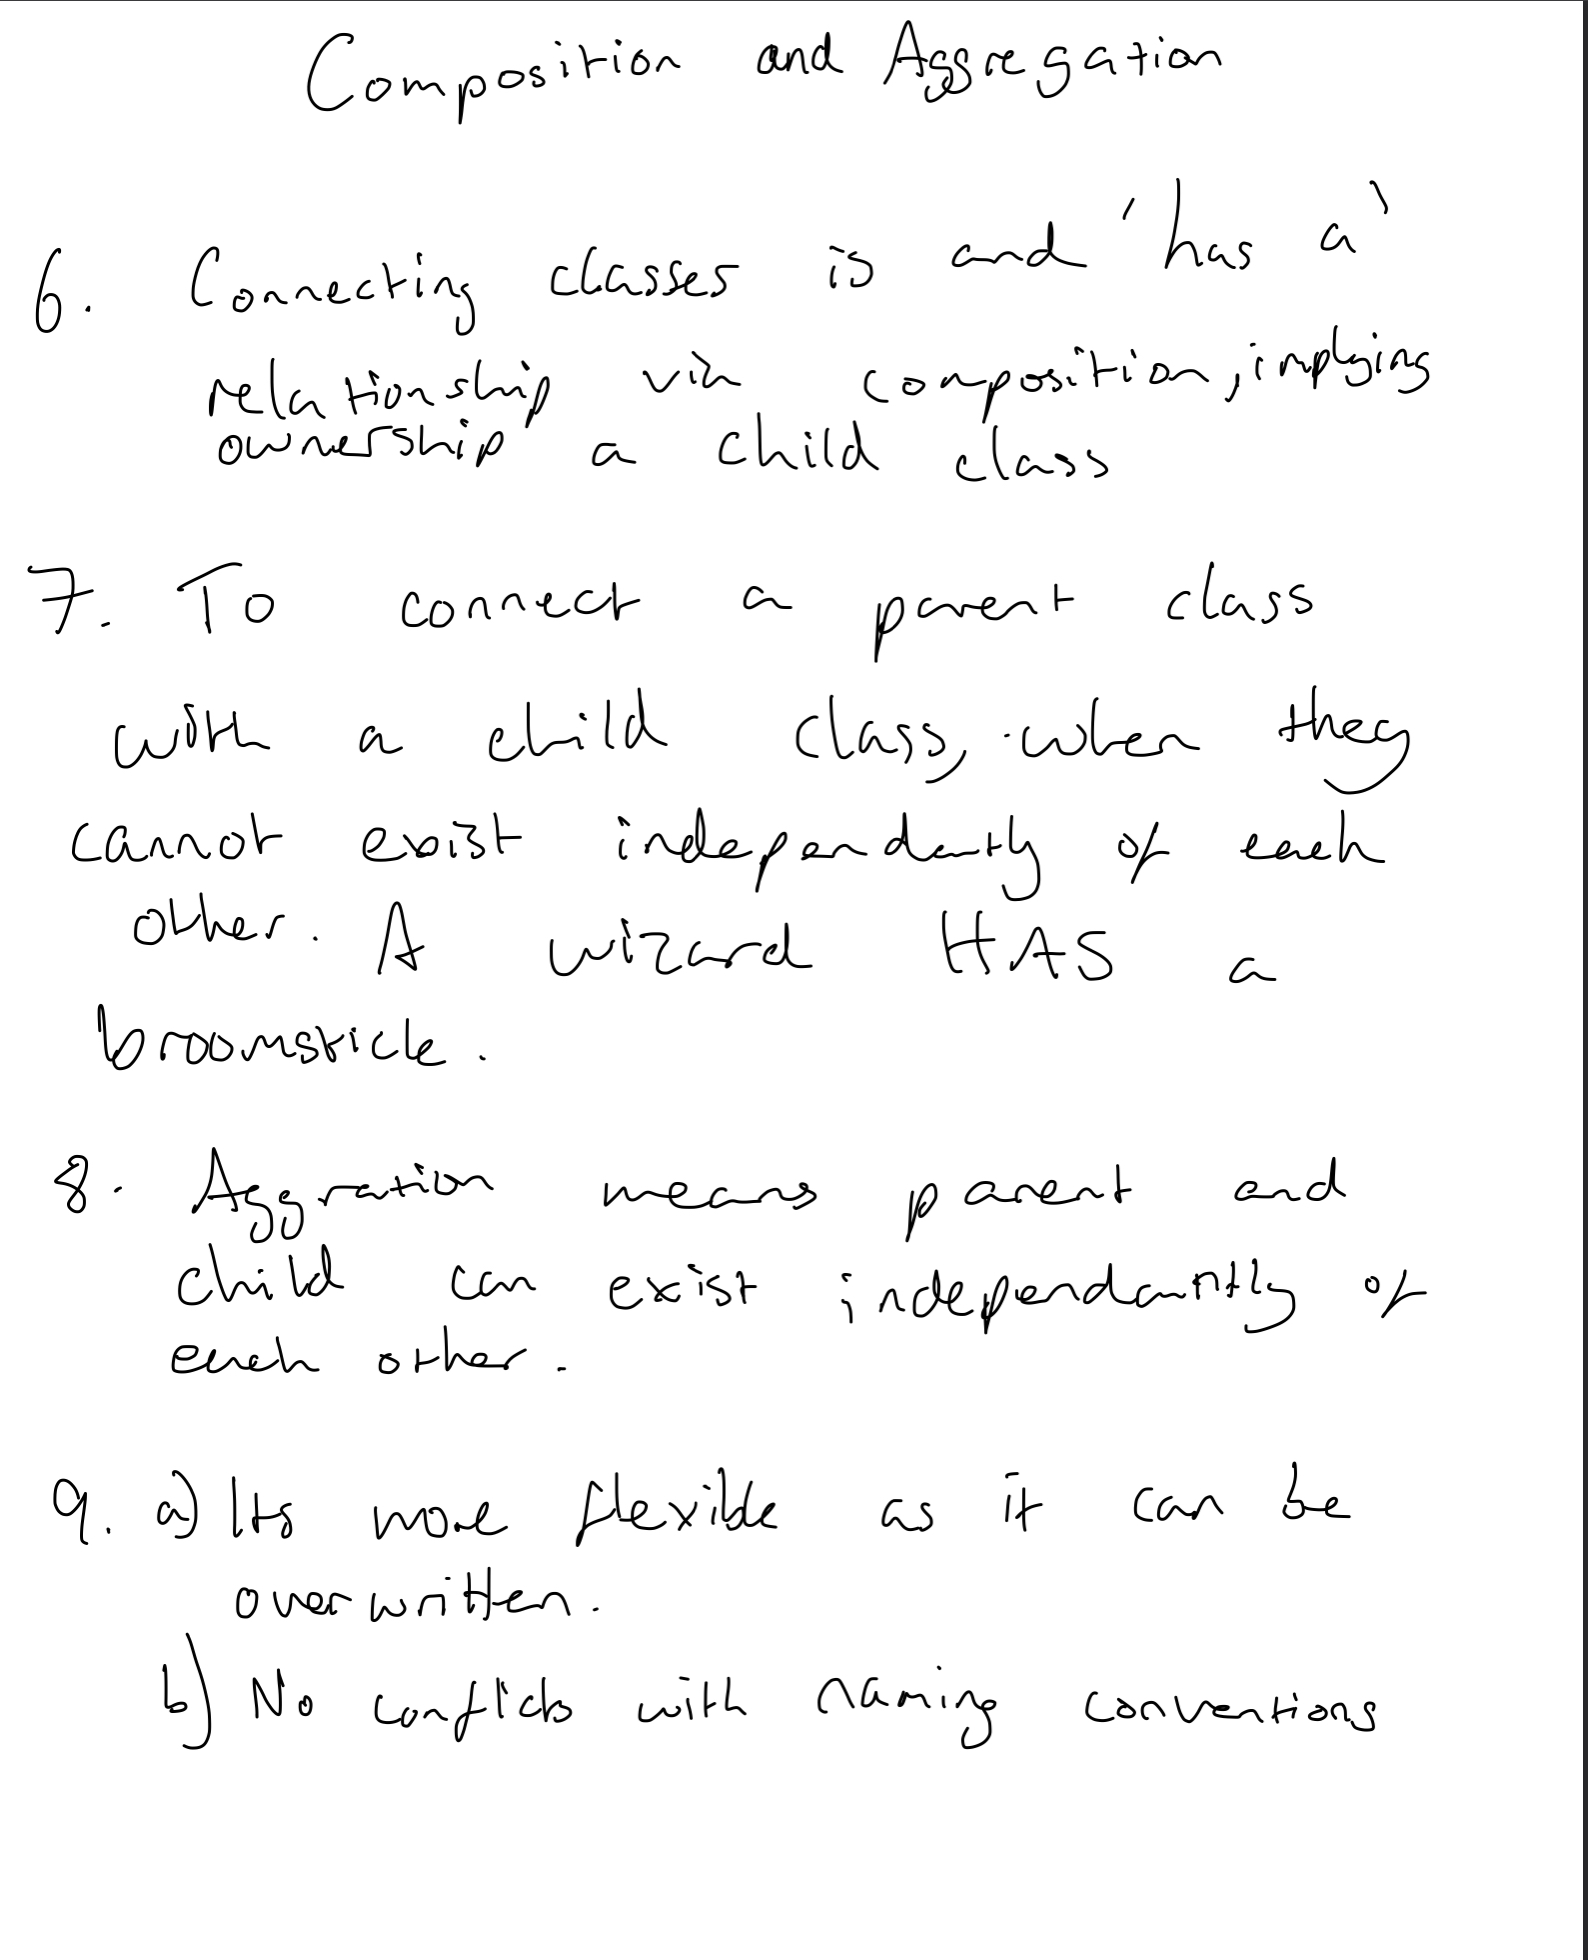 Composition and Aggregation
6. Connecting classes is and 'has a'
relationship via composition, implying
ownership a child class
7. To connect a parent class
with a child class, when they
cannot exist independantly of each
other. A wizard HAS a
broomstick.
8. Aggration means parent and
child can exist independantly of
each other.
9. a) Its more flexible as it can be
overwritten.
b) No conflicts with naming conventions